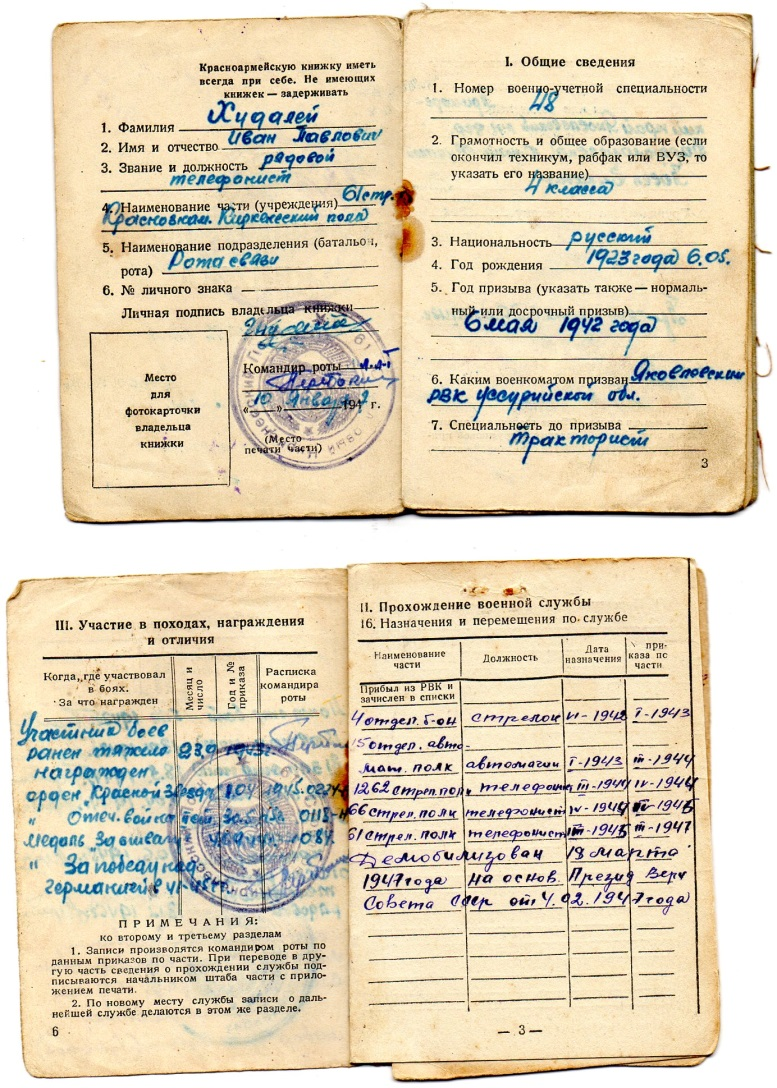 Красноармейскую книжку иметь
всегда при себе. Не имеющих
книжек — задерживать
1. Фамилия Худалей
2. Имя и отчество Иван Павлович
3. Звание и должность рядовой
телефонист
4. Наименование части (учреждения) 61 стр.
Краснознам. Киркенесский полк
5. Наименование подразделения (батальон,
рота) Рота связи
6. № личного знака
Личная подпись владельца книжки
Командир роты
„10" января 194 г.
(Место
печати части)
Место
для
фотокарточки
владельца
книжки
I. Общие сведения
1. Номер военно-учетной специальности
48
2. Грамотность и общее образование (если
окончил техникум, рабфак или ВУЗ, то
указать его название)
4 класса
3. Национальность русский
4. Год рождения 1923 года 6.05.
5. Год призыва (указать также — нормаль-
ный или досрочный призыв)
6 мая 1942 года
6. Каким военкоматом призван Яковлевским
РВК Уссурийской обл.
7. Специальность до призыва
тракторист
3
III. Участие в походах, награждения
и отличия
Когда, где участвовал
в боях.
За что награжден
Месяц и
число
Год и №
приказа
Расписка
командира
роты
Участник боев
ранен тяжело 23.9 1943г
награжден
орден "Красной Звезда" 1945
" Отеч. война
медаль За отвагу
" За победу над
германией в
ПРИМЕЧАНИЯ:
ко второму и третьему разделам
1. Записи производятся командиром роты по
данным приказов по части. При переводе в дру-
гую часть сведения о прохождении службы под-
писываются начальником штаба части с прило-
жением печати.
2. По новому месту службы записи о даль-
нейшей службе делаются в этом же разделе.
6
II. Прохождение военной службы
16. Назначения и перемещения по службе
Наименование
части
Должность
Дата
назначения
№ при-
каза по
части
Прибыл из РВК и
зачислен в списки
4 отдел. б-он стрелок 1942 I-1943
15 отдел. авто-
мат. полк автоматчи I-1943 III-1944
1262 стрел. полк телефонист III-1944 IV-1944
66 стрел. полк телефонист IV-1944 1945
61 стрел. полк телефонист III-1945 III-1947
Демобилизован 18 марта
1947 года на основ. Презид Верх
Совета СССР от 4.02.1947 года
— 3 —